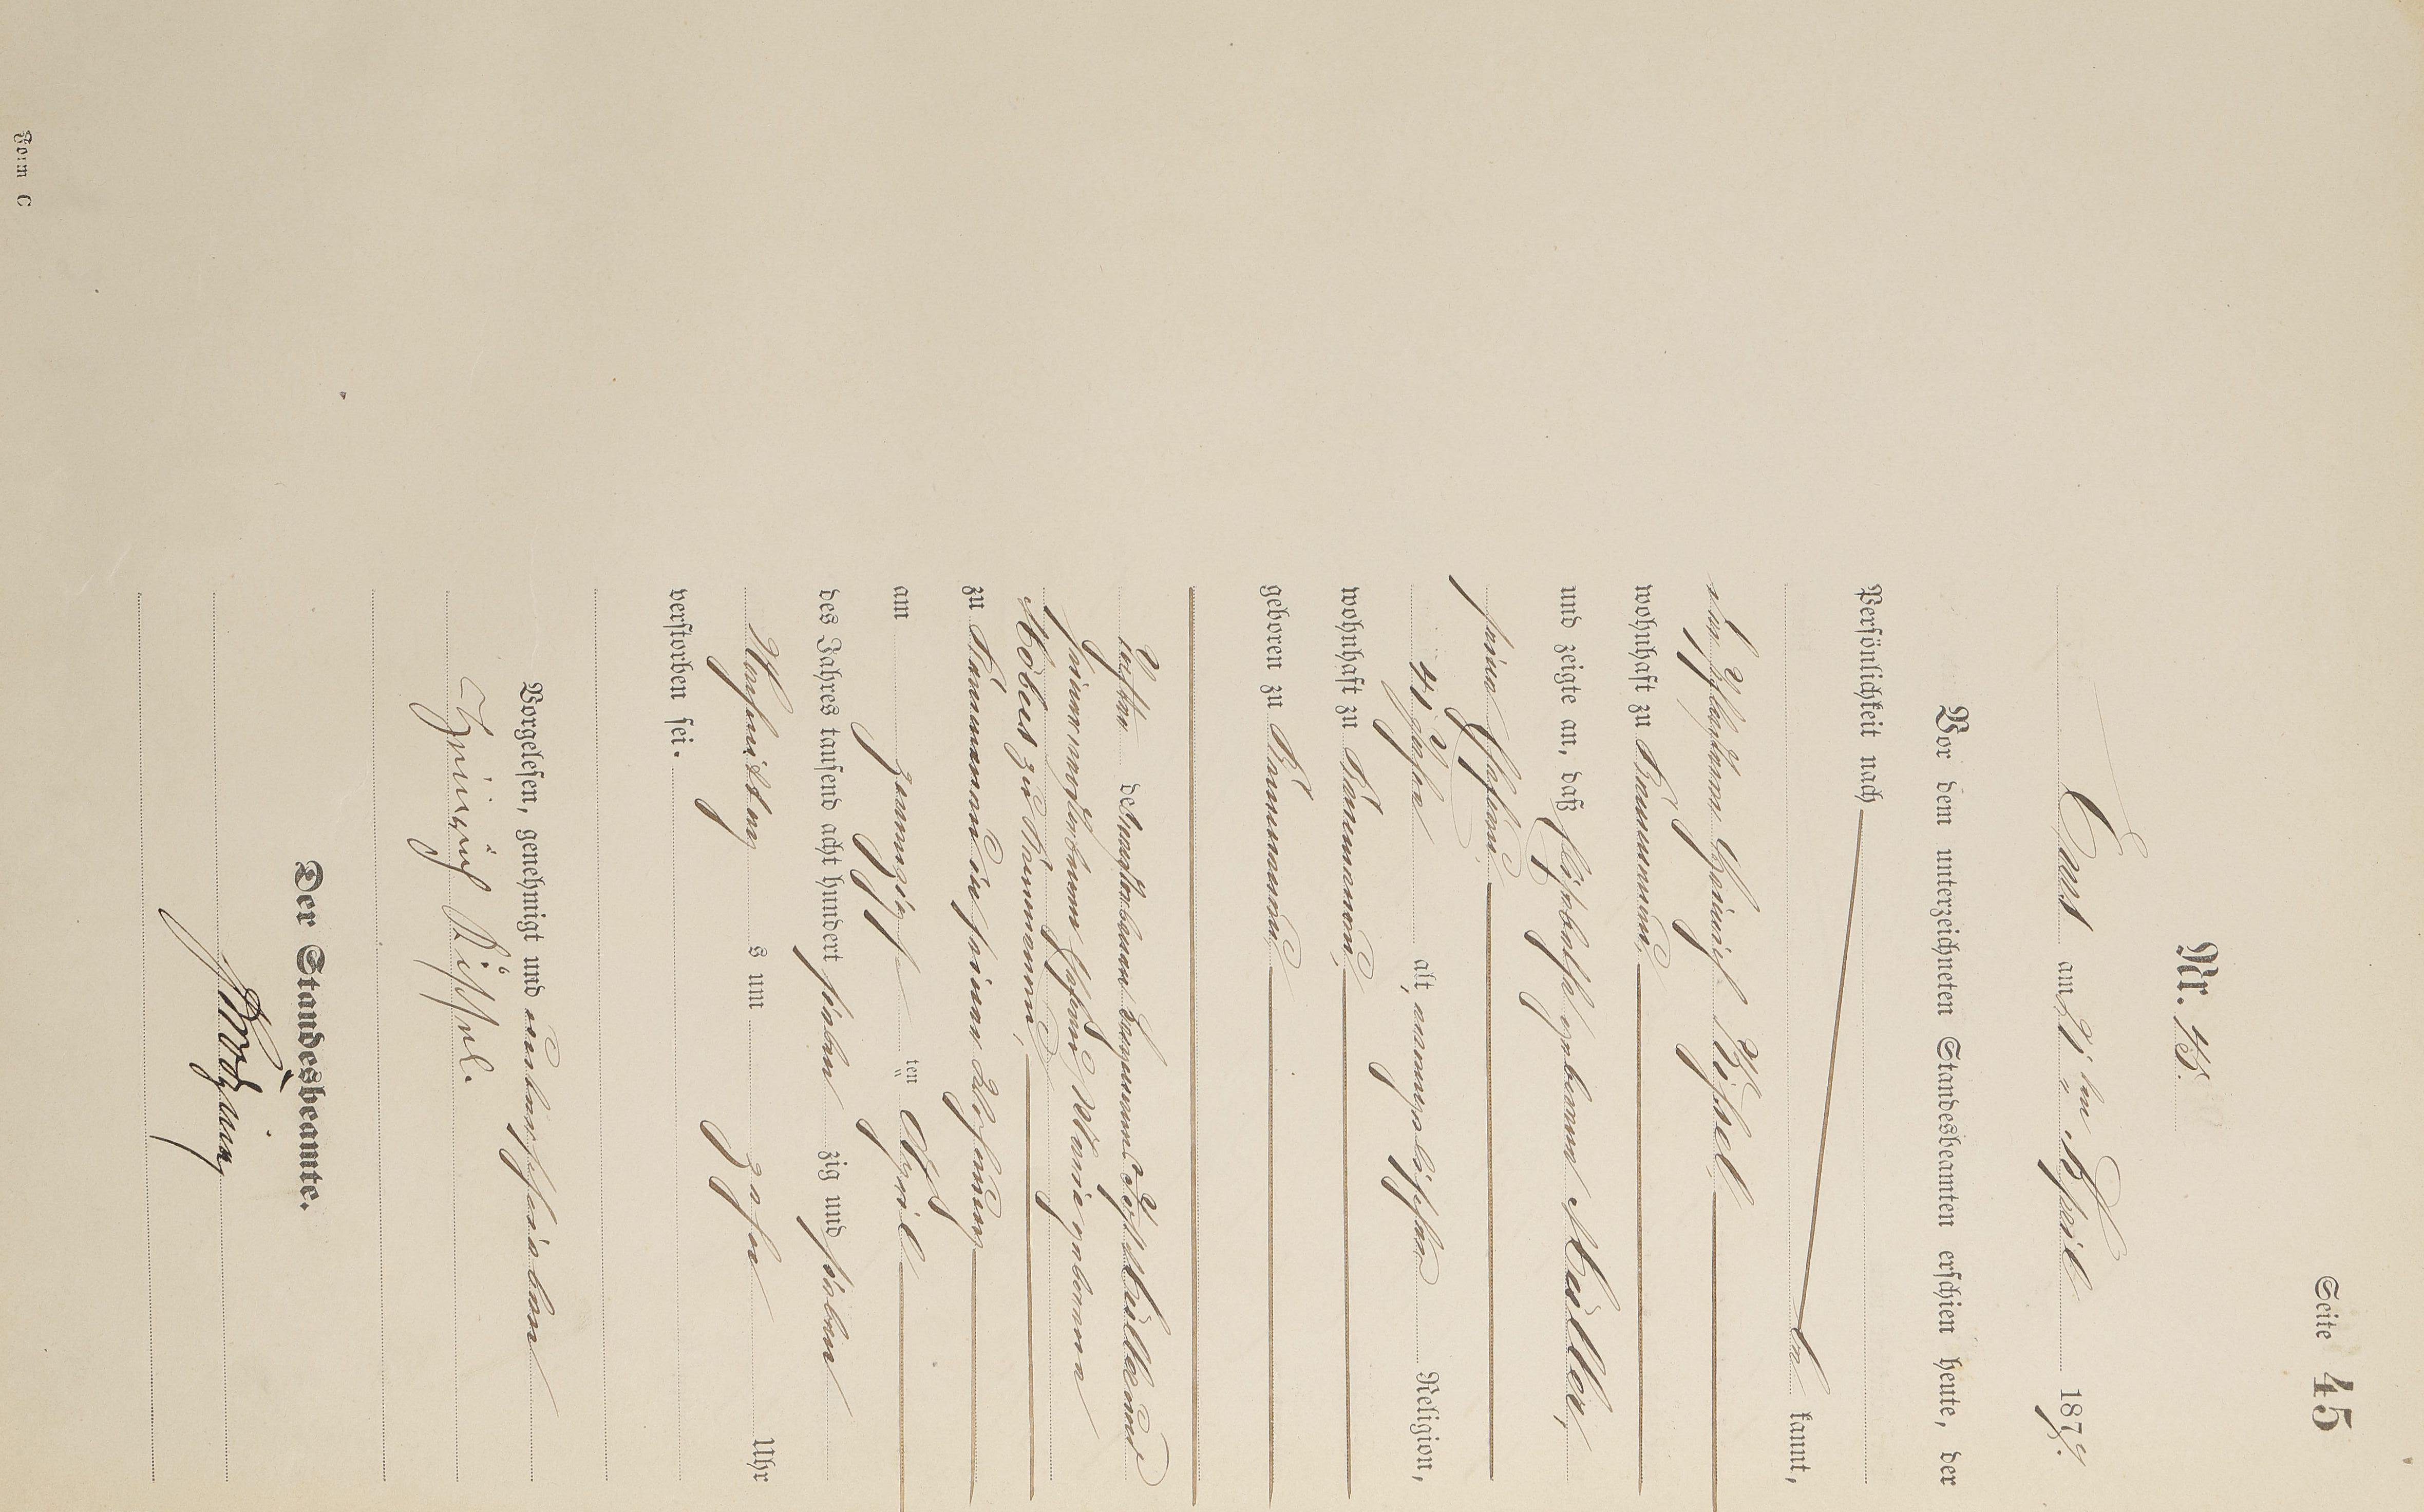 Seite 45
Nr. 45.
Ems am 21ten April 1877.
Vor dem unterzeichneten Standesbeamten erschien heute, der
Persönlichkeit nach
be kannt,
der Heinrich
wohnhaft zu Kemmenau,
und zeigte an, daß Elisabetha geborene Müller,
seine Ehefrau,
41 Jahre alt, evangelischer Religion,
wohnhaft zu Kemmenau,
geboren zu Kemmenau,
Tochter des verstorbenen Müller und
seiner verstorbenen Ehefrau Marie geborene
zu Kemmenau,
zu Kemmenau in seiner Wohnung
am zwanzig ten April
des Jahres tausend acht hundert sieben zig und sieben
Vormittags um zehn Uhr
verstorben sei.
Vorgelesen, genehmigt und unterschrieben
Heinrich
Der Standesbeamte.
Form C